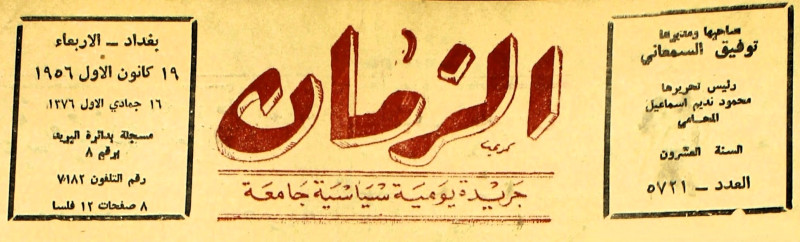 صاحبها ومديرها
توفيق السمعاني
رئيس تحريرها
محمود نديم اسماعيل
المحامي
السنة العشرون
العدد – ٥٧٢١
الزمان
جريدة يومية سياسية جامعة
بغداد – الاربعاء
١٩ كانون الاول ١٩٥٦
١٦ جمادي الاول ١٣٧٦
مسجلة بدائرة البريد
برقم ٨
رقم التلفون ٧١٨٢
٨ صفحات ١٢ فلسا